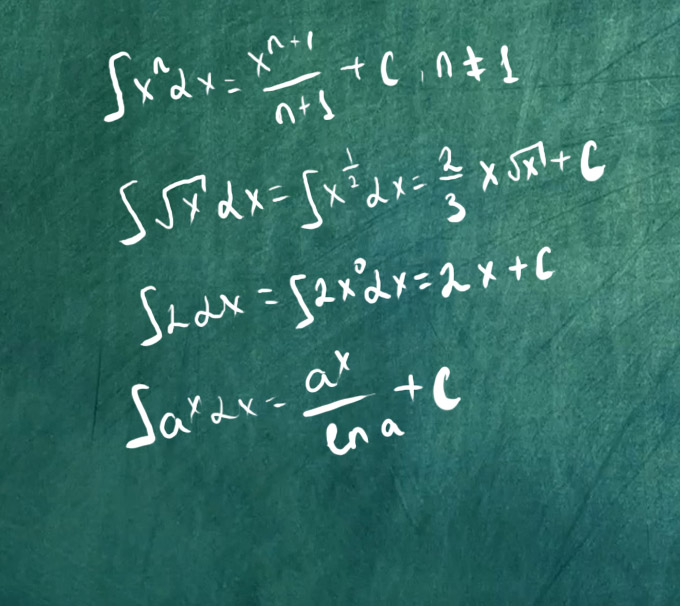 ∫xⁿdx = xⁿ⁺¹/n+1 + C, n ≠ 1
∫√x dx = ∫x^(1/2) dx = 2/3 x√x + C
∫2dx = ∫2x⁰dx = 2x + C
∫aˣdx = aˣ/ln a + C